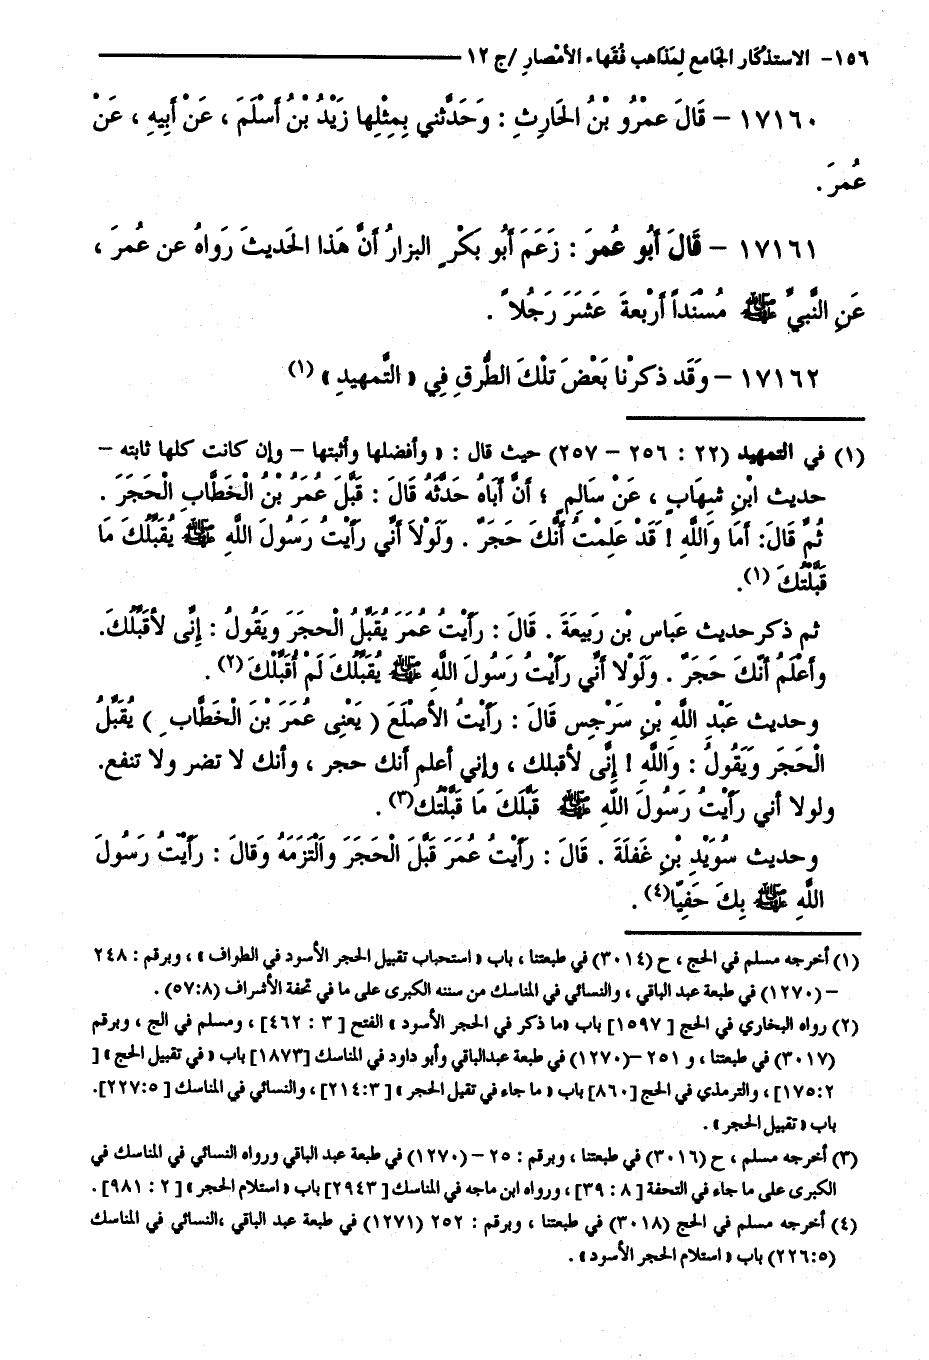 ١٥٦- الاستذكار الجامع لمذاهب فقهاء الأمصار /ج ١٢
١٧١٦٠ – قَالَ عمْرُو بْنُ الحَارِثِ : وَحَدَّثني بِمِثْلِها زَيْدُ بْنُ أَسْلَمَ ، عَنْ أَبِيهِ ، عَنْ
عُمرَ .
١٧١٦١ – قَالَ أَبُو عُمرَ : زَعَمَ أَبُو بَكْرٍ البزارُ أَنَّ هَذا الحَديثَ رَواهُ عن عمرَ ،
عَنِ النَّبيِّ ﷺ مُسْنَداً أَرْبعةَ عَشَرَ رَجُلاً .
١٧١٦٢ – وَقَد ذكرْنا بَعْضَ تلْكَ الطُّرقِ فِي « التَّمهيدِ » (١)
(١) في التمهيد (٢٢ : ٢٥٦ – ٢٥٧) حيث قال : « وأفضلها وأثبتها – وإن كانت كلها ثابته –
حديث ابْنِ شِهَابٍ ، عَنْ سَالِمٍ ؛ أَنَّ أَبَاهُ حَدَّثَهُ قَالَ : قَبَّلَ عُمَرُ بْنُ الْخَطَّابِ الْحَجَرَ .
ثُمَّ قَالَ: أَمَا وَاللَّهِ ! قَدْ عَلِمْتُ أَنَّكَ حَجَرٌ . وَلَوْلاَ أَنِّي رَأَيْتُ رَسُولَ اللَّهِ ﷺ يُقَبِّلُكَ مَا
قَبَّلْتُكَ (١).
ثم ذكر حديث عَباس بْن رَبِيعَةَ . قَالَ : رَأَيْتُ عُمَرَ يُقَبِّلُ الْحجَرَ ويَقُولُ : إِنِّى لأقَبِّلُكَ.
وأَعْلَمُ أَنَّكَ حَجَرٌ . وَلَوْلا أَنِّي رَأَيْتُ رَسُولَ اللَّهِ ﷺ يُقَبِّلُكَ لَمْ أُقَبِّلْكَ (٢) .
وحديث عَبْدِ اللَّهِ بْنِ سَرْجِس قَالَ : رَأَيْتُ الأصْلَعَ ( يَعْنِى عُمَرَ بْنَ الْخَطَّابِ ) يُقَبِّلُ
الْحَجَرَ وَيَقُولُ : وَاللَّهِ ! إِنِّى لأقبلك ، وإني أعلم أنك حجر ، وأنك لا تضر ولا تنفع.
ولولا أني رَأَيْتُ رَسُولَ اللَّهِ ﷺ قَبَّلَكَ مَا قَبَّلْتُك(٣) .
وحديث سُوَيْدِ بْنِ غَفَلَةَ . قَالَ : رَأَيْتُ عُمَرَ قَبَّلَ الْحَجَرَ وَالْتَزَمَهُ وَقَالَ : رَأَيْتُ رَسُولَ
اللَّهِ ﷺ بِكَ حَفِيّا(٤) .
(١) أخرجه مسلم في الحج ، ح (٣٠١٤) في طبعتنا ، باب « استحباب تقبيل الحجر الأسود في الطواف » ، وبرقم : ٢٤٨
– (١٢٧٠) في طبعة عبد الباقي ، والنسائي في المناسك من سننه الكبرى على ما في تحفة الأشراف (٥٧:٨) .
(٢) رواه البخاري في الحج [ ١٥٩٧] باب «ما ذكر في الحجر الأسود » الفتح [ ٣ : ٤٦٢] ، ومسلم في الج ، وبرقم
(٣٠١٧) في طبعتنا ، و ٢٥١ –(١٢٧٠) في طبعة عبدالباقي وأبو داود في المناسك [١٨٧٣] باب « في تقبيل الحج » [
١٧٥:٢] ، والترمذي في الحج [٨٦٠] باب « ما جاء في تقيل الحجر » [ ٢١٤:٣] ، والنسائي في المناسك [ ٢٢٧:٥].
باب « تقبيل الحجر » .
(٣) أخرجه مسلم ، ح (٣٠١٦) في طبعتنا ، وبرقم : ٢٥ – (١٢٧٠) في طبعة عبد الباقي ورواه النسائي في المناسك في
الكبرى على ما جاء في التحفة [ ٨ : ٣٩] ، ورواه ابن ماجه في المناسك [ ٢٩٤٣] باب « استلام الحجر » [ ٢ : ٩٨١] .
(٤) أخرجه مسلم في الحج (٣٠١٨) في طبعتنا ، وبرقم : ٢٥٢ (١٢٧١) في طبعة عبد الباقي ،النسائي في المناسك
(٢٢٦:٥) باب « استلام الحجر الأسود» .